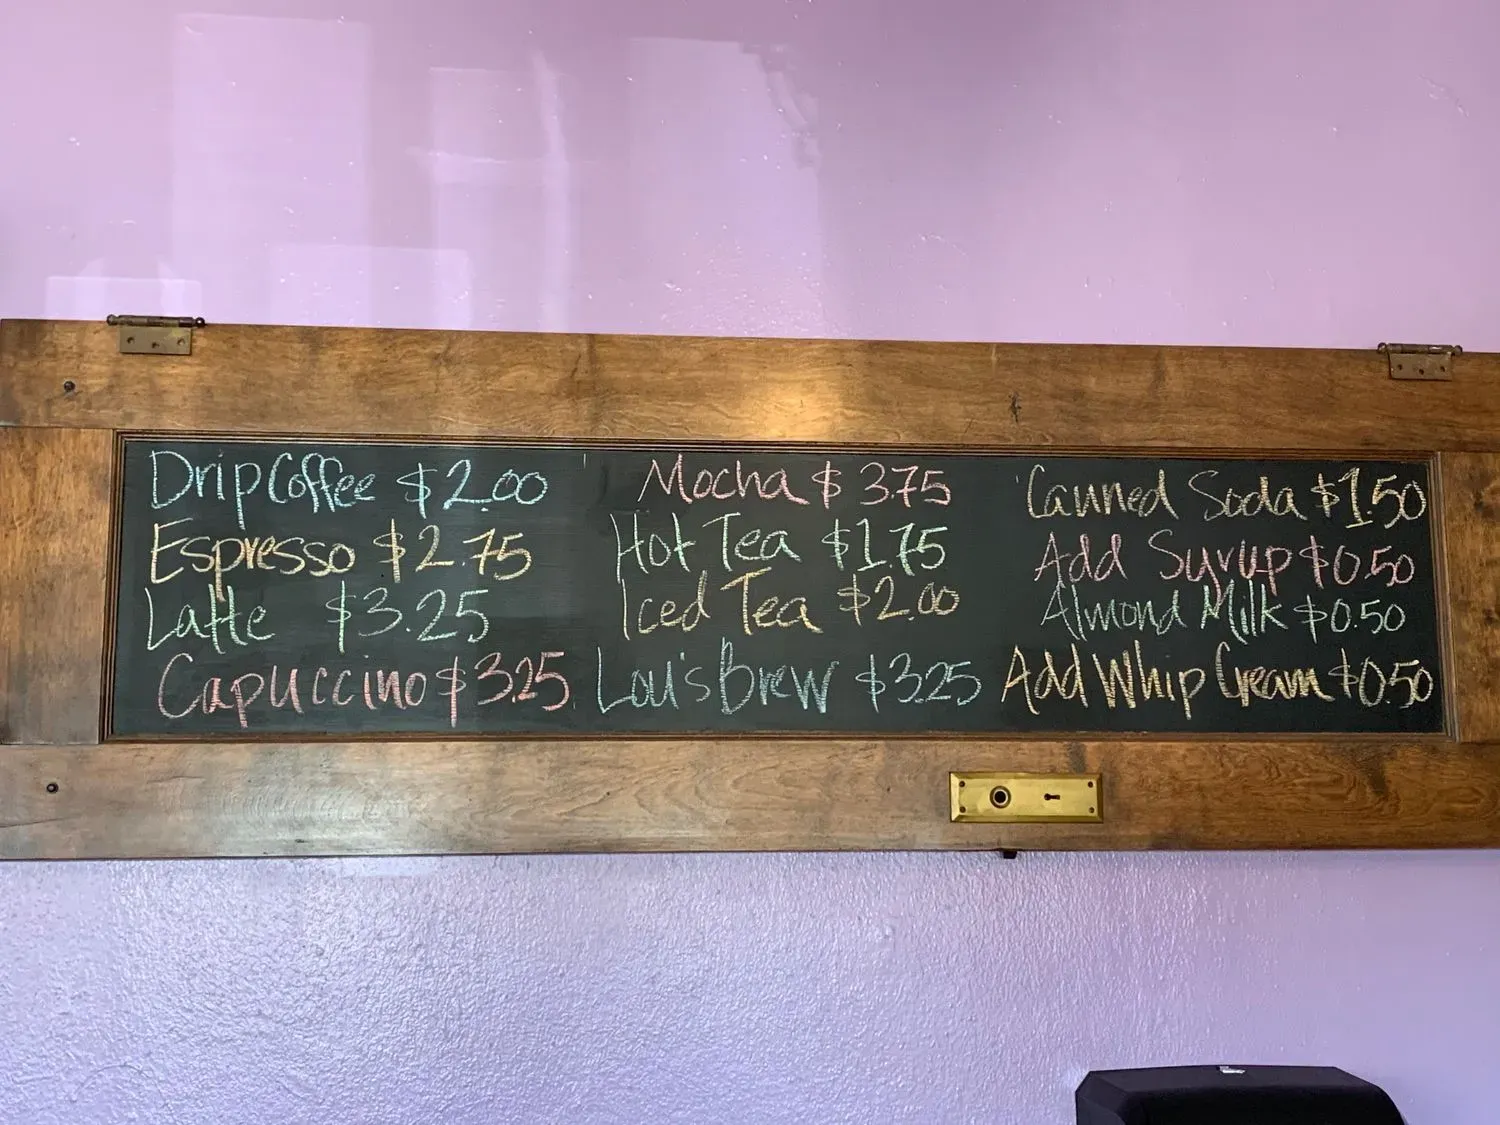 Drip Coffee $2.00
Espresso $2.75
Latte $3.25
Capuccino $3.25
Mocha $3.75
Hot Tea $1.75
Iced Tea $2.00
Lou's Brew $3.25
Canned Soda $1.50
Add Syrup $0.50
Almond Milk $0.50
Add Whip Cream $0.50